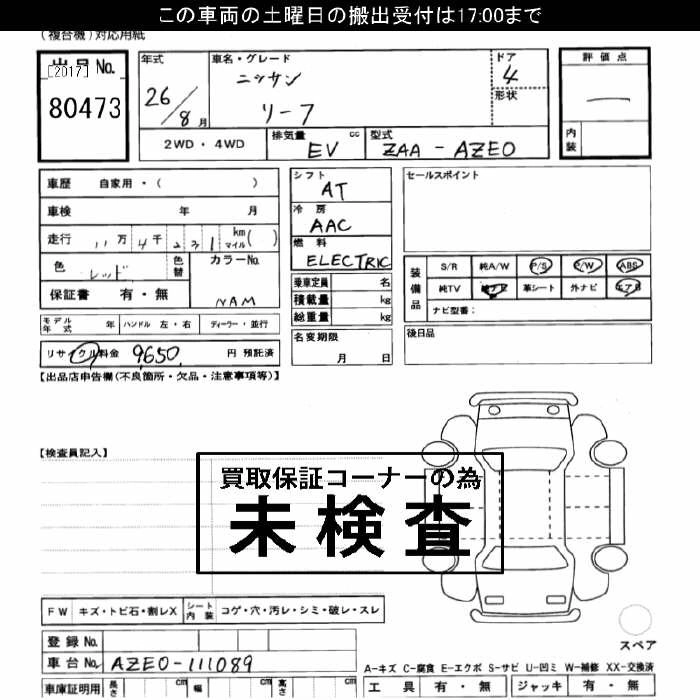 この車両の土曜日の搬出受付は17:00まで
(複合機)対応用紙
出品No. [2017] 80473
年式 26/8月
車名・グレード ニッサン リーフ
ドア 4
形状
評価点
内装
2WD・4WD
排気量 cc EV
型式 ZAA-AZEO
車歴 自家用・( )
車検 年 月
走行 11万4千231 km マイル( )
色 レッド 色替 カラーNo. NAM
保証書 有・無
モデル年式 年 ハンドル 左・右 ディーラー・並行
リサイクル料金 9650 円 預託済
シフト AT
冷房 AAC
燃料 ELECTRIC
乗車定員 名
積載量 kg
総重量 kg
名変期限 月 日
セールスポイント
装備品 S/R 純A/W P/S P/W ABS
純TV 純ナビ 革シート 外ナビ エアB
ナビ型番:
後日品
【出品店申告欄(不良箇所・欠品・注意事項等)】
【検査員記入】
買取保証コーナーの為
未検査
FW キズ・トビ石・割レX シート内装 コゲ・穴・汚レ・シミ・破レ・スレ
登録No.
車台No. AZEO-111089
車庫証明用 長さ cm 幅 cm 高さ cm
スペア
A-キズ C-腐食 E-エクボ S-サビ U-凹ミ W-補修 XX-交換済
工具 有・無 ジャッキ 有・無